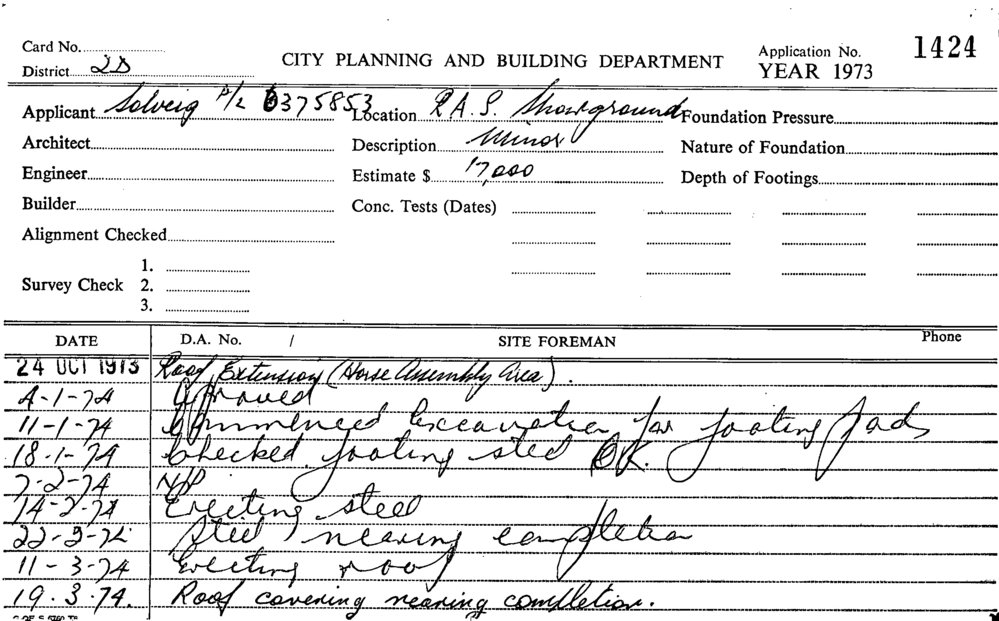 Card No.
CITY PLANNING AND BUILDING DEPARTMENT
Application No. 1424
District 2D
YEAR 1973
Applicant Solveig P/L 6375853 Location R.A.S. Showground Foundation Pressure
Architect Description Minor Nature of Foundation
Engineer Estimate $ 17,000 Depth of Footings
Builder Conc. Tests (Dates)
Alignment Checked
1.
Survey Check 2.
3.
DATE D.A. No. / SITE FOREMAN Phone
24 OCT 1973 Roof Extension (Horse Assembly Area).
4-1-74 Approved
11-1-74 Commenced Excavation for footing pads
18-1-74 Checked footing steel OK.
7-2-74 N/P
14-2-74 Erecting steel
22-2-74 Steel nearing completion
11-3-74 Erecting roof
19.3.74. Roof covering nearing completion.